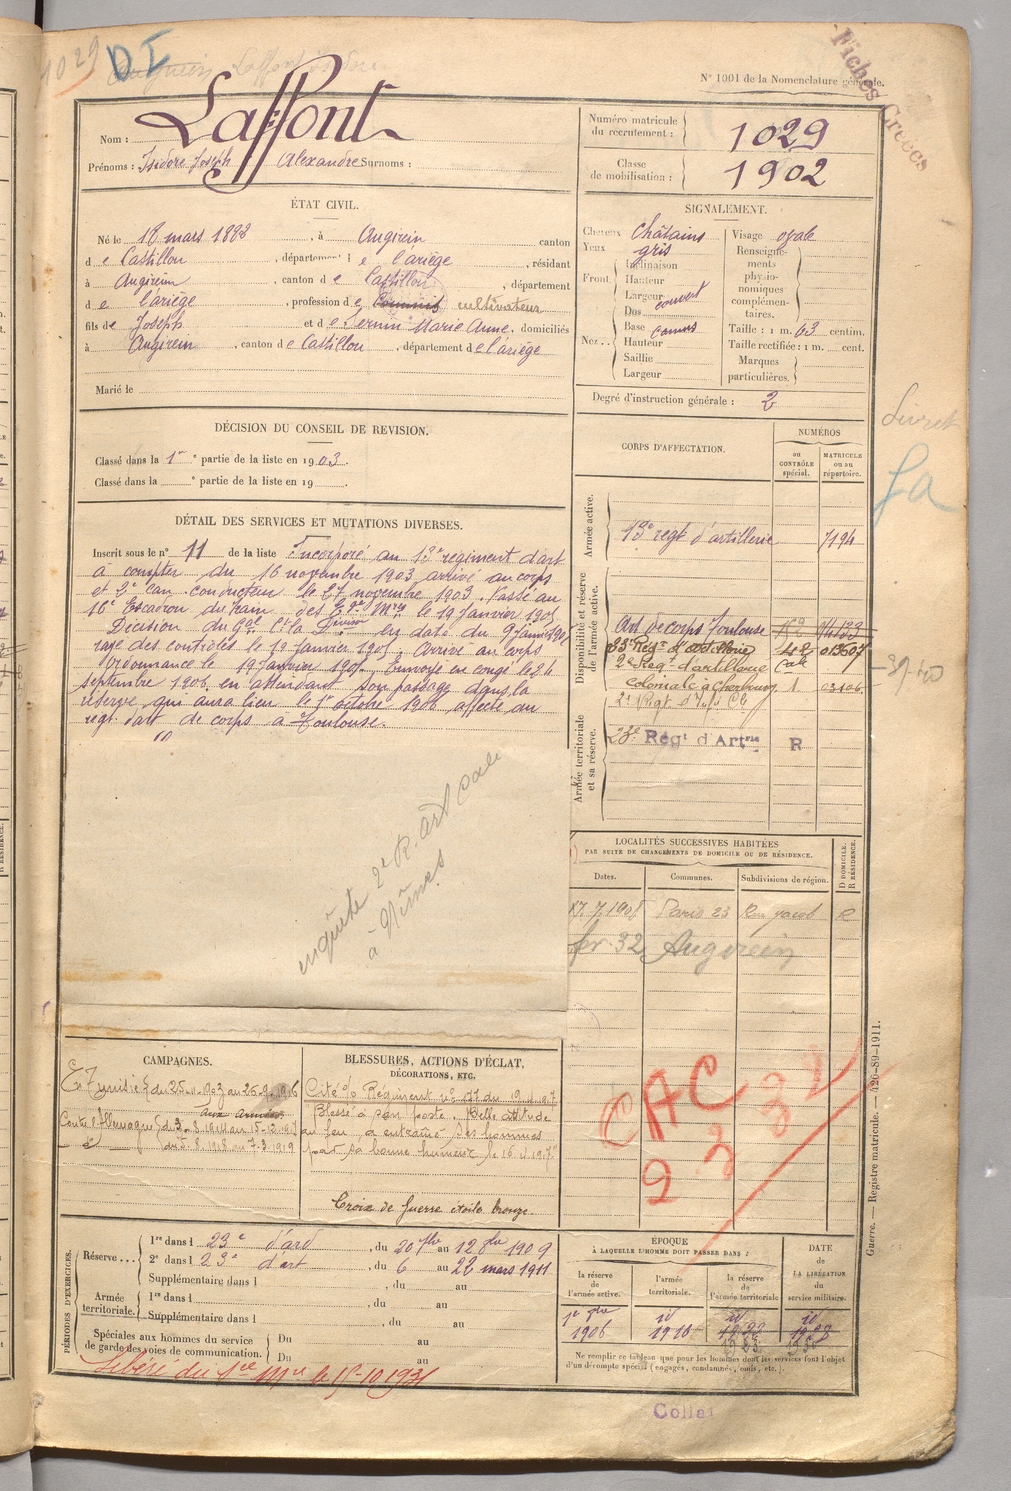 1029
D I
Laffont Isidore
N° 1001 de la Nomenclature générale.
Fiches Créées
Nom : Laffont
Prénoms : Isidore Joseph Alexandre Surnoms :
Numéro matricule du recrutement : 1029
Classe de mobilisation : 1902
ÉTAT CIVIL.
Né le 18 mars 1882, à Augirein canton
de Castillon, département de l'ariège, résidant
à Augirein, canton de Castillon, département
de l'ariège, profession de Commis cultivateur
fils de Joseph et de Sernin Marie Anne, domiciliés
à Augirein, canton de Castillon, département de l'ariège
Marié le
SIGNALEMENT.
Cheveux châtains
Yeux gris
Front
Inclinaison
Hauteur
Largeur couvert
Nez
Dos
Base camus
Hauteur
Saillie
Largeur
Visage ovale
Renseignements physionomiques complémentaires.
Taille : 1 m. 63 centim.
Taille rectifiée : 1 m. cent.
Marques particulières.
Degré d'instruction générale : 2
Livret
fa
DÉCISION DU CONSEIL DE REVISION.
Classé dans la 1re partie de la liste en 1903.
Classé dans la e partie de la liste en 19
DÉTAIL DES SERVICES ET MUTATIONS DIVERSES.
Inscrit sous le n° 11 de la liste Incorporé au 13e régiment d'art
à compter du 16 novembre 1903 arrivé au corps
et 2e can. conducteur le 27 novembre 1903. Passé au
16e Escadron du train des Eges Mres le 19 Janvier 1905
Décision du Gal Ct la Division en date du 9 janvier 1905
rayé des contrôles le 19 Janvier 1905. Arrivé au corps
ordonnance le 19 Janvier 1905. Envoyé en congé le 24
septembre 1906 en attendant son passage dans la
réserve qui aura lieu le 1er octobre 1906 affecté au
regt d'art de corps à Toulouse.
enquête 2e R. art cale
à Nîmes
CORPS D'AFFECTATION.
NUMÉROS
au CONTRÔLE spécial.
MATRICULE ou au répertoire.
Armée active.
13e regt d'artillerie 7194
Disponibilité et réserve de l'armée active.
Art de corps Toulouse
23e Reg. d'artillerie 013607
2e Reg. d'artillerie
coloniale à Cherbourg 1 03106
39-40
Armée territoriale et sa réserve.
23e Régt d'Artrie R
LOCALITÉS SUCCESSIVES HABITÉES
PAR SUITE DE CHANGEMENTS DE DOMICILE OU DE RÉSIDENCE.
Dates.
Communes.
Subdivisions de région.
D DOMICILE.
R RÉSIDENCE.
Paris 23 Rue jacob R
fer 32 Augirein
CAMPAGNES.
En Tunisie
Contre l'Allemagne
aux armées
du 5-8-1918 au 7-3-1919
BLESSURES, ACTIONS D'ÉCLAT,
DÉCORATIONS, ETC.
Cité o/o Régiment n° 177 du 19.4.1917
Blessé à son poste. Belle attitude
au feu, a entraîné ses hommes
par sa bonne humeur, le 16.4.1917
Croix de Guerre étoile bronze.
CAC
32
Guerre. — Registre matricule. — 426-89-1911.
PÉRIODES D'EXERCICES.
Réserve
1re dans l 23e d'art, du 20 7bre au 12 8bre 1909
2e dans l 23e d'art, du 6 au 22 mars 1911
Supplémentaire dans l, du au
Armée territoriale.
1re dans l, du au
Supplémentaire dans l, du au
Spéciales aux hommes du service de garde des voies de communication.
Du au
Du au
Libéré du Sce Mre le 15-10-1931
ÉPOQUE
À LAQUELLE L'HOMME DOIT PASSER DANS :
la réserve de l'armée active.
l'armée territoriale.
la réserve de l'armée territoriale
DATE de LA LIBÉRATION du service militaire.
1906
Ne remplir ce tableau que pour les hommes dont les services font l'objet
d'un décompte spécial (engagés, condamnés, omis, etc.).
Collat